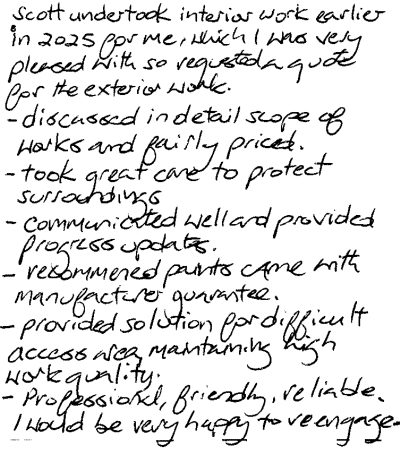 Scott undertook interior work earlier
in 2025 for me, which I was very
pleased with so requested a quote
for the exterior work.
- discussed in detail scope of
works and fairly priced.
- took great care to protect
surroundings
- communicated well and provided
progress updates.
- recommened paints came with
manufacturer guarantee.
- provided solution for difficult
access area, maintaining high
work quality.
- Professional, friendly, reliable.
I would be very happy to reengage.